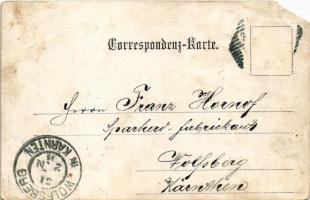 Correspondenz-Karte.
Herrn Franz Hornof
Sparherd-fabrickant
Wolfsberg
Kärnthen
WOLFSBERG
IN KÄRNTEN